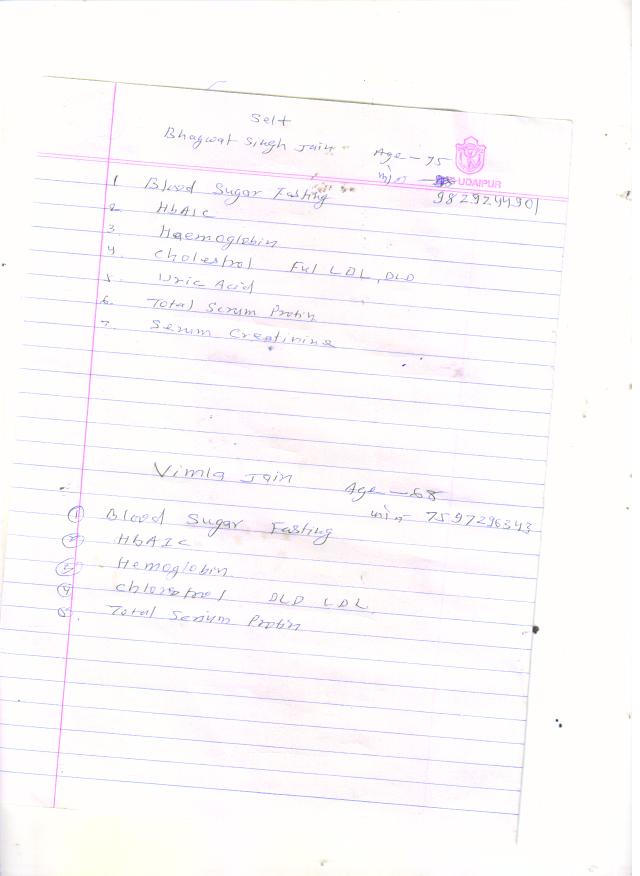 Self
Bhagwat Singh Jain Age - 75
UDAIPUR
9829244901
1 Blood Sugar Fasting
2 HbA1C
3 Haemoglobin
4. Cholestrol Ful LDL, DLD
5. Uric Acid
6. Total Serum Protin
7. Serum Creatinine
Vimla Jain Age - 68
7597296343
① Blood Sugar Fasting
② HbA1C
③ Hemoglobin
④ Chlorestrol DLD LDL
⑤. Total Serium Protin